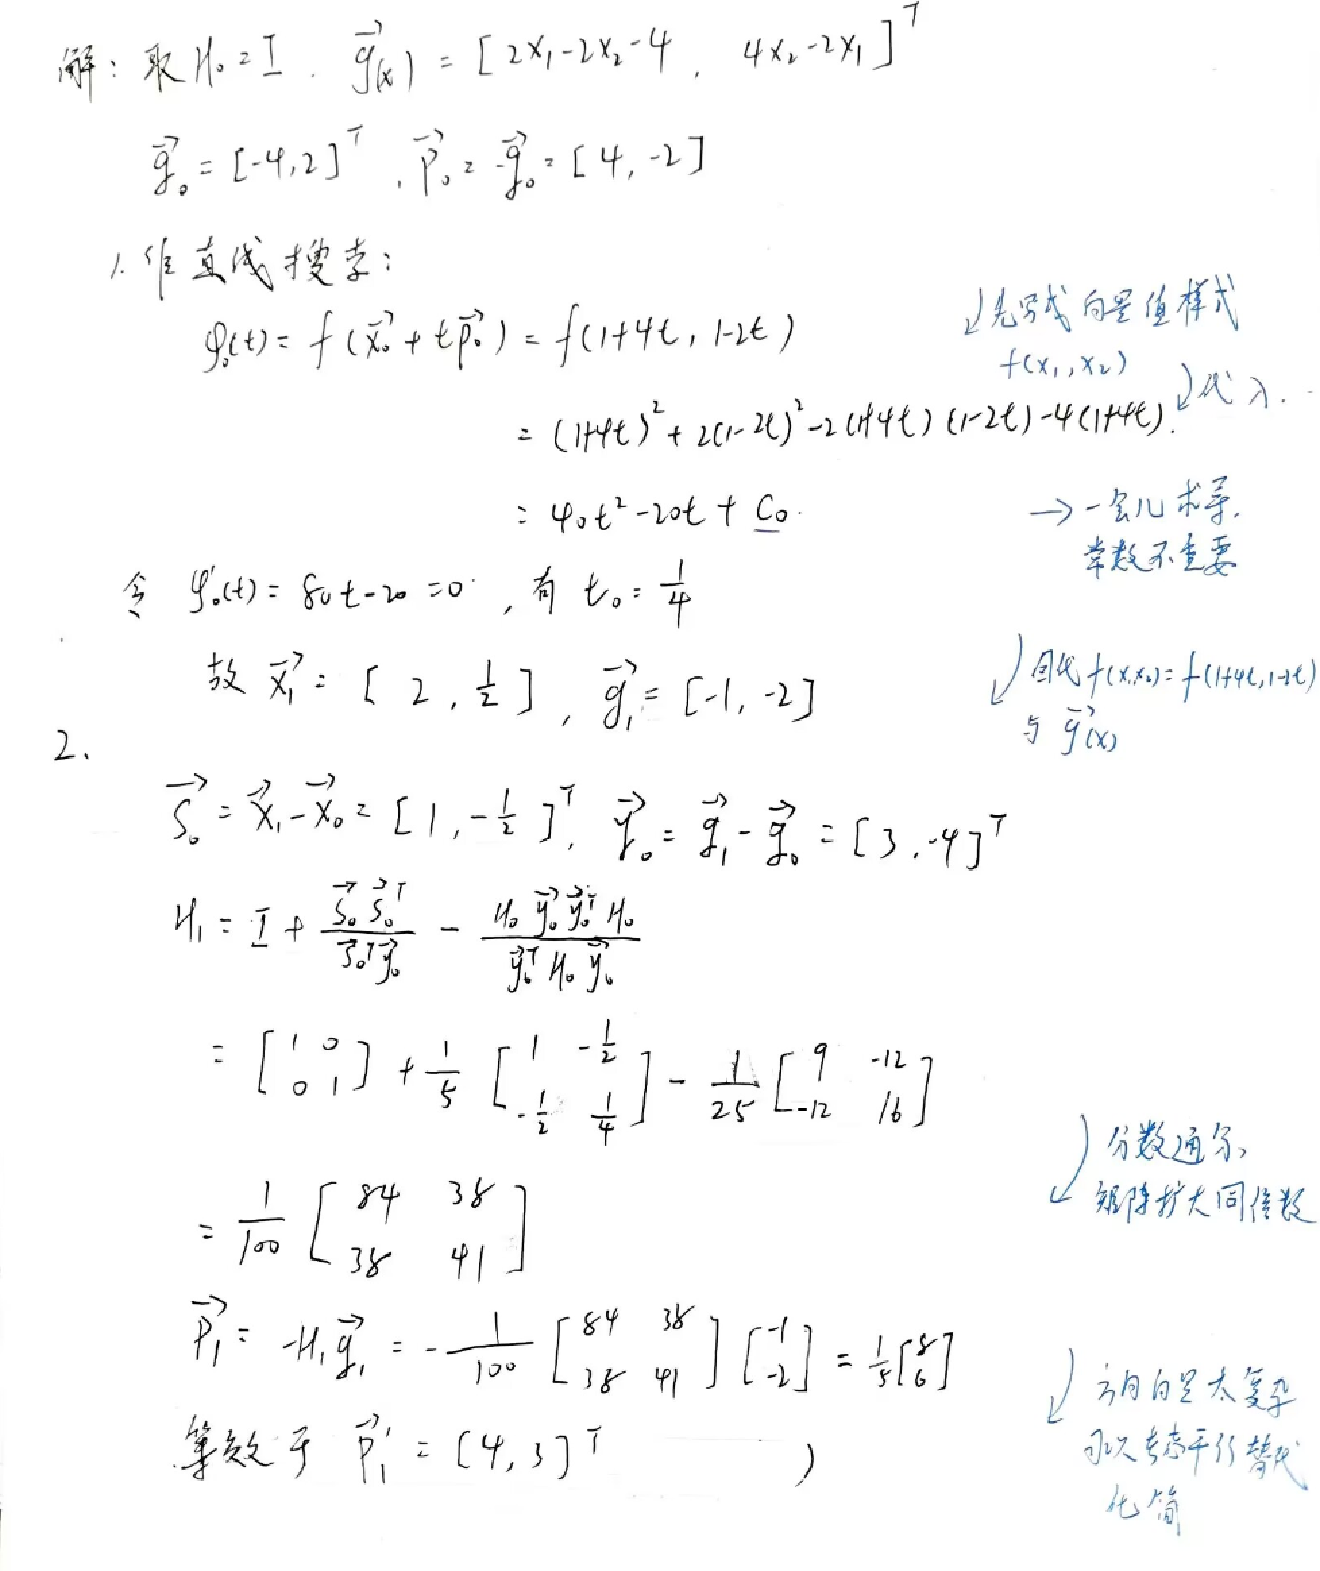 解：取 H₀ = I . g⃗(x) = [2x₁-2x₂-4 , 4x₂-2x₁]ᵀ
g⃗₀ = [-4,2]ᵀ , p⃗₀ = -g⃗₀ = [4,-2]
1. 作直线搜索：
φ₀(t) = f(x⃗₀ + tp⃗₀) = f(1+4t, 1-2t)
↓先写成向量值样式
f(x₁,x₂)
= (1+4t)² + 2(1-2t)² - 2(1+4t)(1-2t) - 4(1+4t).
↓代入. ..
= 40t² - 20t + C₀.
→一会儿求导.
常数不重要
令 φ₀'(t) = 80t - 20 = 0 , 有 t₀ = 1/4
故 x⃗₁ = [2, 1/2] , g⃗₁ = [-1, -2]
↓回代 f(x₁,x₂) = f(1+4t, 1-2t)
与 g⃗(x)
2.
S⃗₀ = x⃗₁ - x⃗₀ = [1, -1/2]ᵀ, y⃗₀ = g⃗₁ - g⃗₀ = [3, -4]ᵀ
H₁ = I + (S⃗₀ S⃗₀ᵀ)/(S⃗₀ᵀ y⃗₀) - (H₀ y⃗₀ y⃗₀ᵀ H₀)/(y⃗₀ᵀ H₀ y⃗₀)
= [1 0; 0 1] + 1/5 [1 -1/2; -1/2 1/4] - 1/25 [9 -12; -12 16]
↓分数通分、
矩阵扩大同倍数
= 1/100 [84 38; 38 41]
p⃗₁ = -H₁g⃗₁ = -1/100 [84 38; 38 41] [-1; -2] = 1/5 [8; 6]
↓方向向量太复杂
可以考虑平行替代
化简
等效于 p⃗₁' = [4, 3]ᵀ )